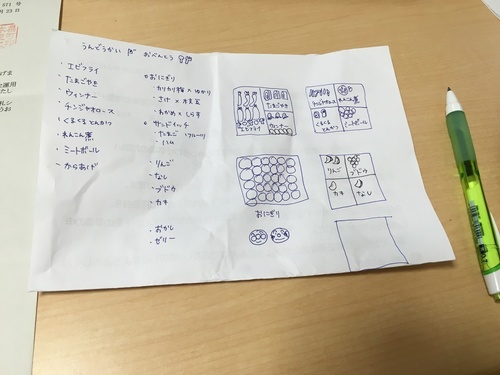 571 号
月 23 日
うんどうかい おべんとう
・エビフライ
・たまごやき
・ウィンナー
・チンジャオロース
・くるくる とんかつ
・れんこん煮
・ミートボール
・からあげ
おにぎり
・カリカリ梅 × ゆかり
・さけ × 枝豆
・わかめ × しらす
サンドイッチ
・たまご ・フルーツ
・ハム
・りんご
・なし
・ブドウ
・カキ
・おかし
・ゼリー
たまごやき
エビフライ
ウィンナー
チンジャオロース
れんこん煮
くるくるとんかつ
ミートボール
おにぎり
りんご
ブドウ
カキ
なし